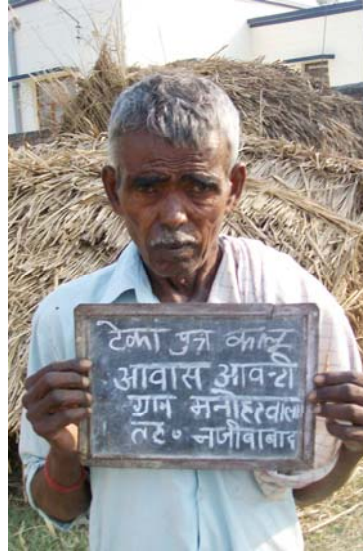 टेका पुत्र कालू
आवास आवन्टी
ग्राम मनोहरवाला
तह० नजीबाबाद